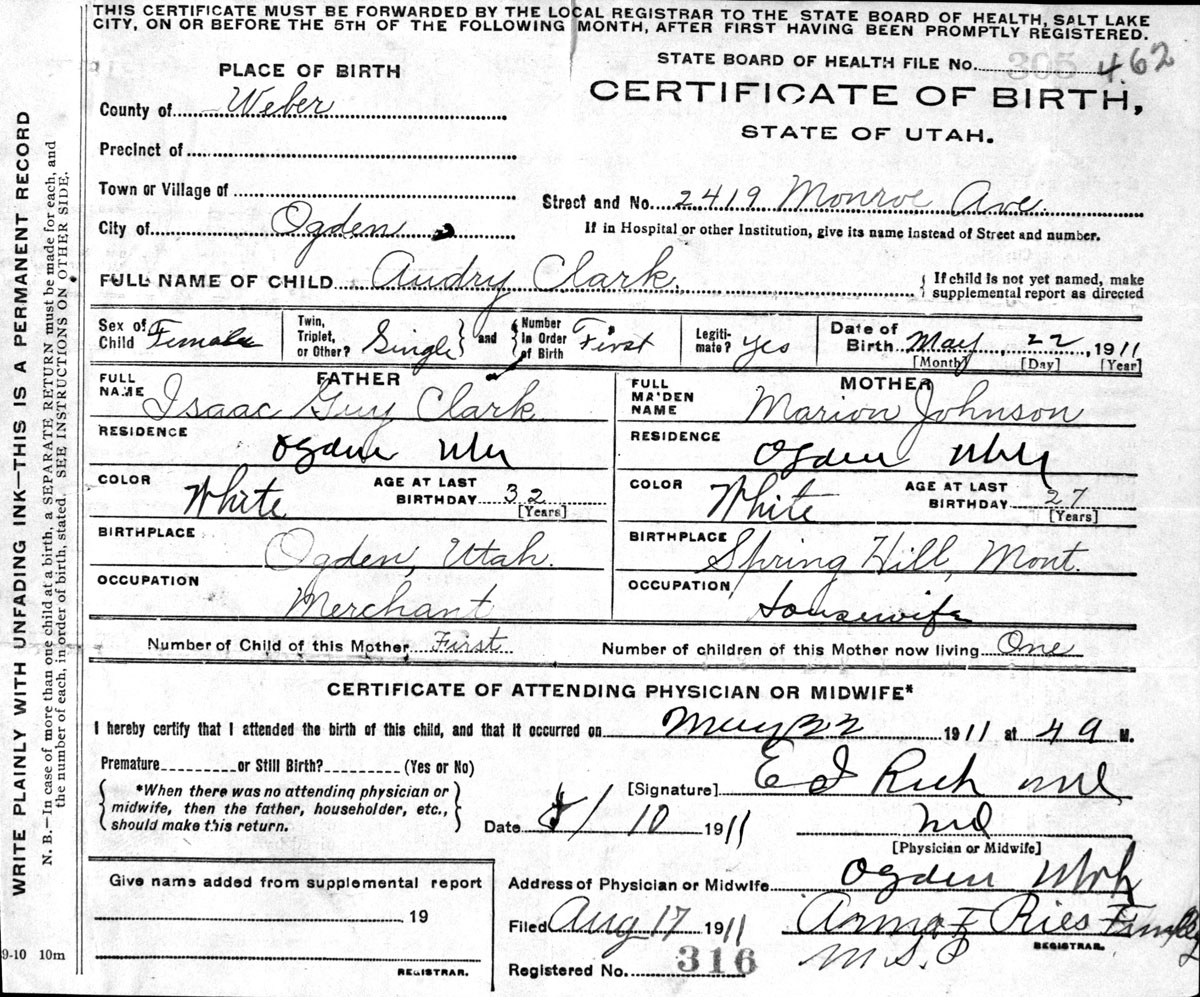 THIS CERTIFICATE MUST BE FORWARDED BY THE LOCAL REGISTRAR TO THE STATE BOARD OF HEALTH, SALT LAKE
CITY, ON OR BEFORE THE 5TH OF THE FOLLOWING MONTH, AFTER FIRST HAVING BEEN PROMPTLY REGISTERED.
WRITE PLAINLY WITH UNFADING INK—THIS IS A PERMANENT RECORD
N. B.—In case of more than one child at a birth, a SEPARATE RETURN must be made for each, and
the number of each, in order of birth, stated. SEE INSTRUCTIONS ON OTHER SIDE.
STATE BOARD OF HEALTH FILE No. 305 462
CERTIFICATE OF BIRTH,
STATE OF UTAH.
PLACE OF BIRTH
County of Weber
Precinct of
Town or Village of
City of Ogden
Street and No. 2419 Monroe Ave.
If in Hospital or other Institution, give its name instead of Street and number.
FULL NAME OF CHILD Audry Clark.
If child is not yet named, make
supplemental report as directed
Sex of Child Female
Twin, Triplet, or Other? Single
and Number In Order of Birth First
Legitimate? Yes
Date of Birth May, 22, 1911
[Month] [Day] [Year]
FATHER
FULL NAME Isaac Guy Clark
RESIDENCE Ogden
COLOR White
AGE AT LAST BIRTHDAY 32
[Years]
BIRTHPLACE Ogden, Utah.
OCCUPATION Merchant
MOTHER
FULL MAIDEN NAME Marion Johnson
RESIDENCE Ogden
COLOR White
AGE AT LAST BIRTHDAY 27
[Years]
BIRTHPLACE Spring Hill, Mont.
OCCUPATION Housewife
Number of Child of this Mother First
Number of children of this Mother now living One
CERTIFICATE OF ATTENDING PHYSICIAN OR MIDWIFE*
I hereby certify that I attended the birth of this child, and that it occurred on May 22 1911 at 4 9 M.
Premature or Still Birth? (Yes or No)
*When there was no attending physician or
midwife, then the father, householder, etc.,
should make this return.
[Signature] E I Rich md
Date 8/10 1911
md
[Physician or Midwife]
Address of Physician or Midwife Ogden Utah
Filed Aug 17 1911
REGISTRAR.
Registered No. 316
Give name added from supplemental report
19
REGISTRAR.
9-10 10m